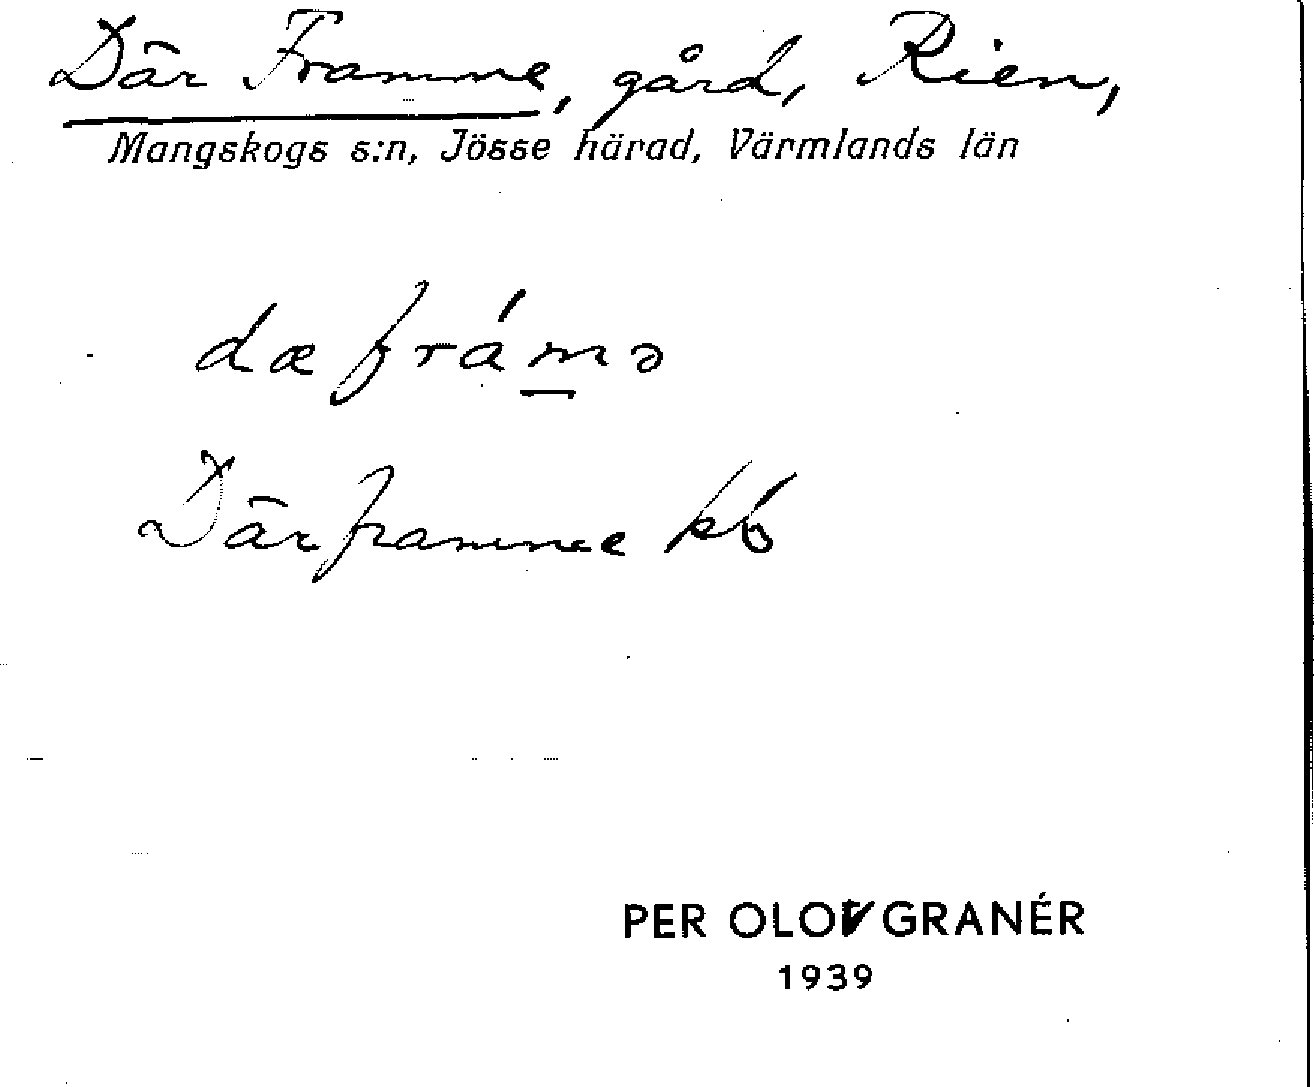 Där Framme, gård, Rien,
Mangskogs s:n, Jösse härad, Värmlands län
dæ frámə
Därframme kb
PER OLOV GRANÉR
1939